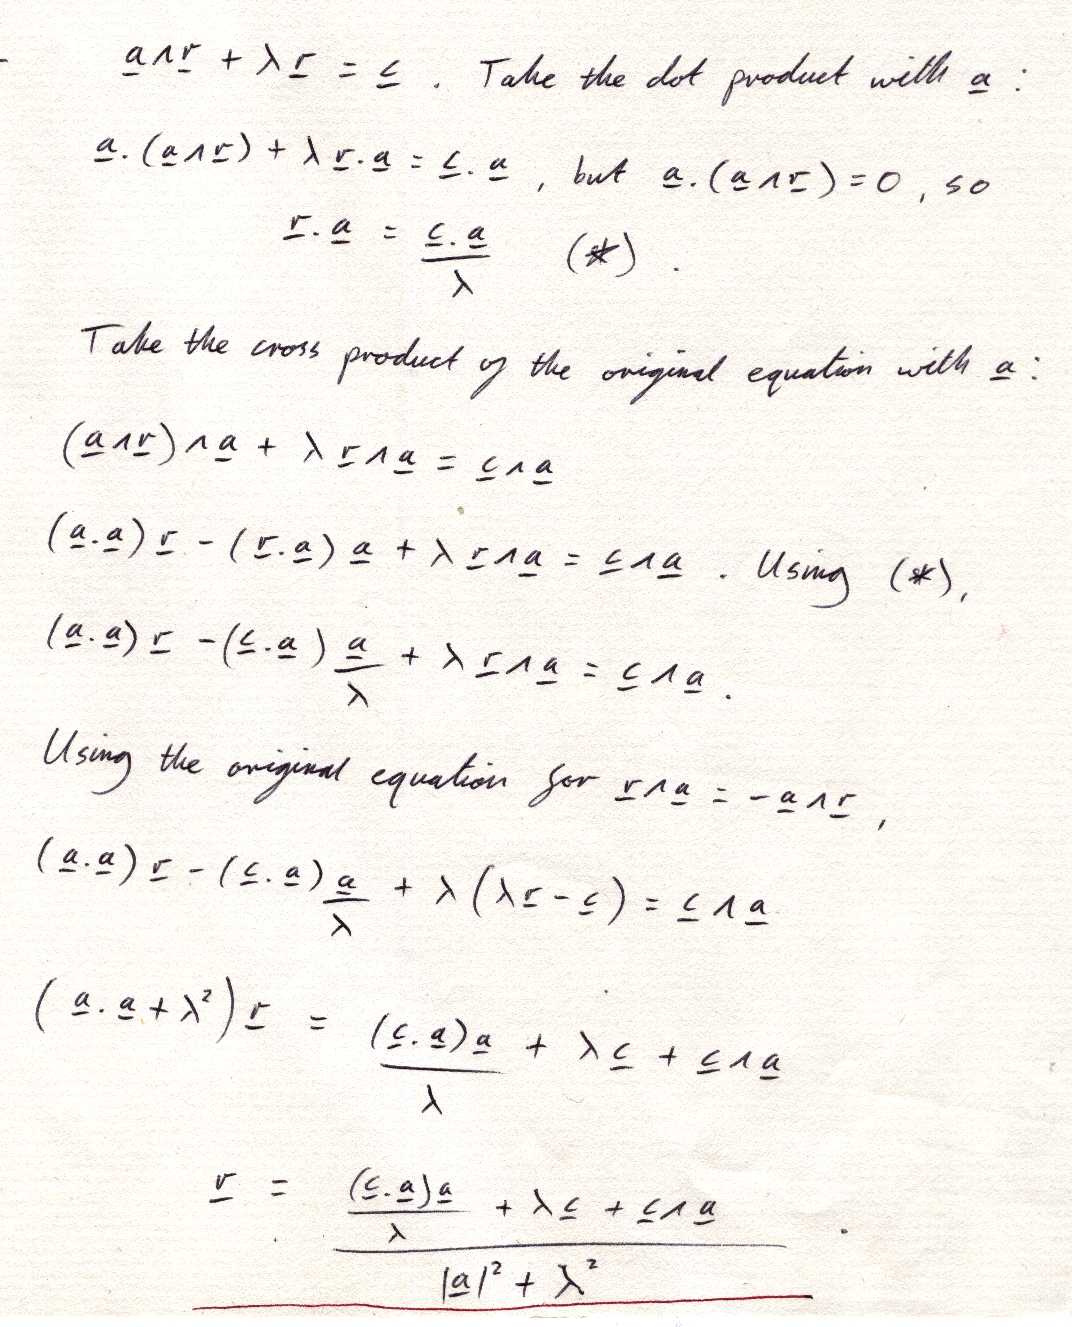 a∧r + λr = c . Take the dot product with a :
a.(a∧r) + λ r.a = c.a , but a.(a∧r) = 0 , so
r.a = c.a / λ (*) .
Take the cross product of the original equation with a :
(a∧r)∧a + λ r∧a = c∧a
(a.a) r - (r.a) a + λ r∧a = c∧a . Using (*),
(a.a) r - (c.a) a / λ + λ r∧a = c∧a .
Using the original equation for r∧a = -a∧r ,
(a.a) r - (c.a) a / λ + λ(λr - c) = c∧a
(a.a + λ²) r = (c.a)a / λ + λc + c∧a
r = ((c.a)a / λ + λc + c∧a) / (|a|² + λ²) .